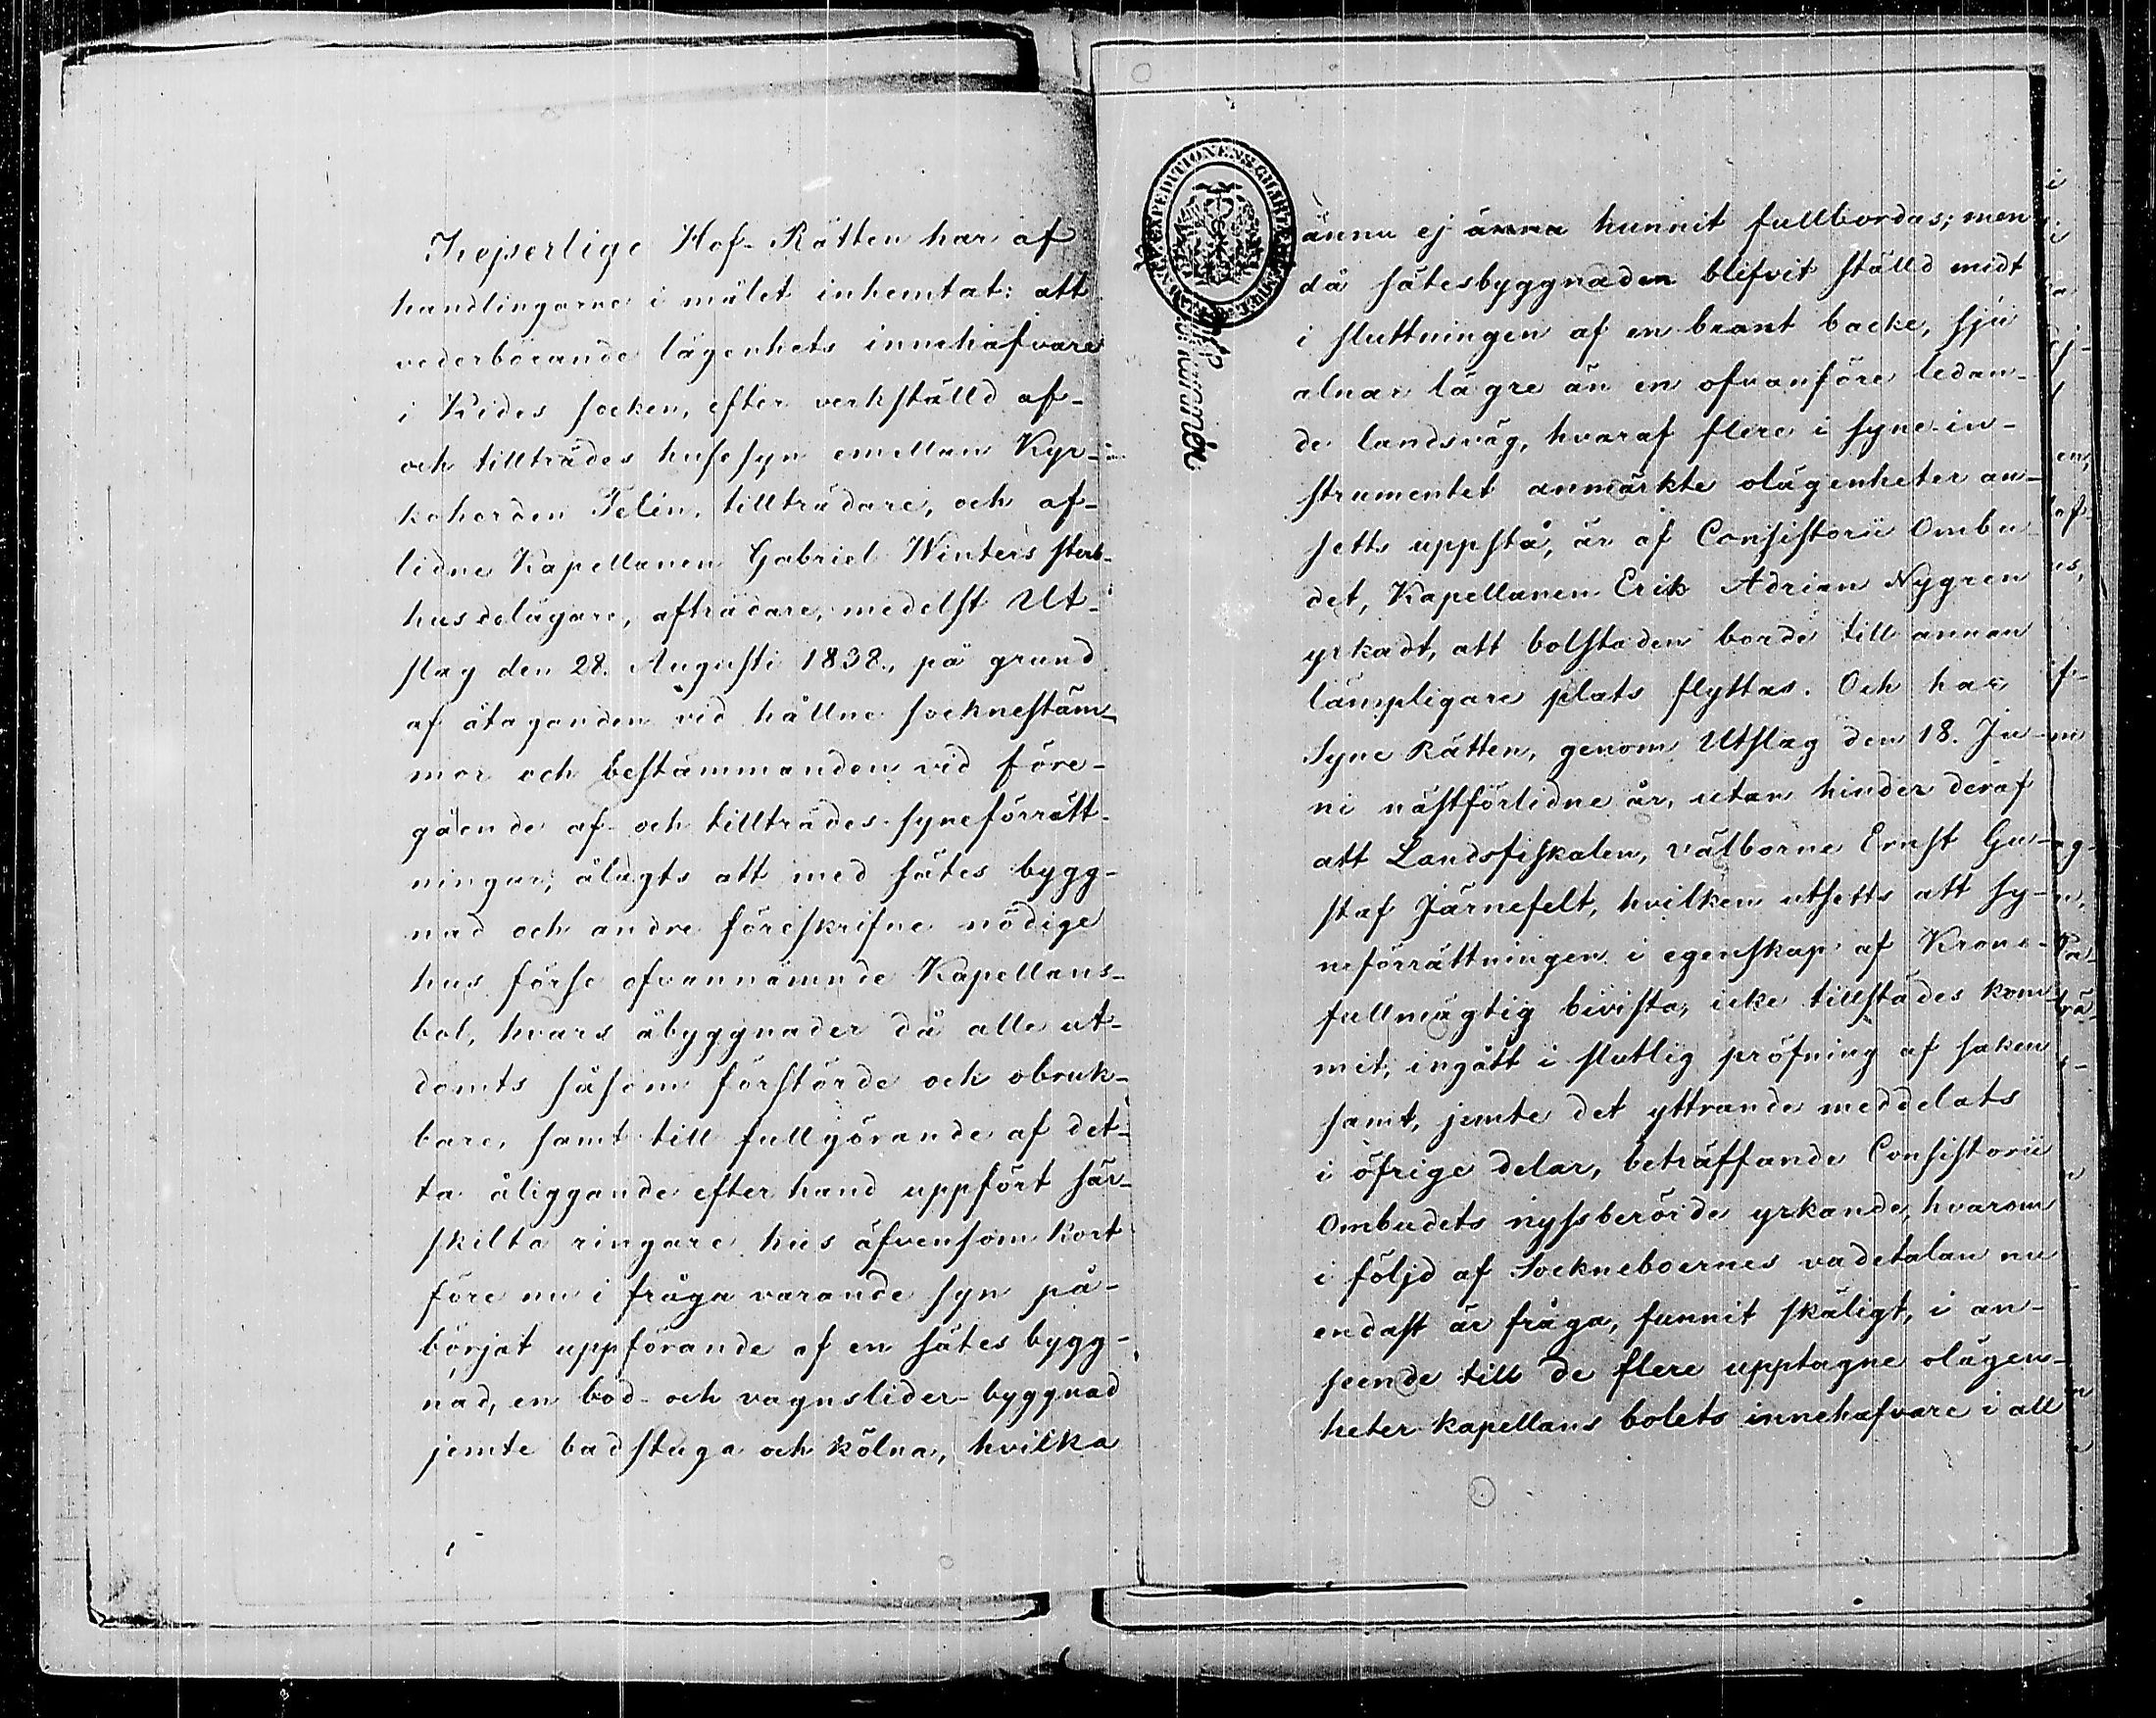 Kejserlige Hof-Rätten har af
handlingarne i målet inhemtat: att
vederbörande lägenhets innehafvare
i Kides socken, efter verkställd af-
och tillträdes husesyn emellan Kyr-
koherden Telén, tillträdare, och af-
lidne Kapellanen Gabriel Winters sterb-
husdelägare, afträdare, medelst Ut-
slag den 28. Augusti 1838., på grund
af åtaganden vid hållne socknestäm-
mor och bestämmanden vid före-
gående af- och tillträdes-syneförrätt-
ningar, ålagts att med sätes bygg-
nad och andre föreskrifne nödige
hus förse ofvannämnde Kapellans-
bol, hvars åbyggnader då alle ut-
dömts såsom förstörde och obruk-
bare, samt till fullgörande af det-
ta åliggande efter hand uppfört sär-
skilta ringare hus äfvensom kort
före nu i fråga varande syn på-
börjat uppförande af en sätes bygg-
nad, en bod- och vagnslider-byggnad
jemte badstuga och kölna, hvilka
ännu ej ännu hunnit fullbordas; men
då sätesbyggnaden blifvit ställd midt
i sluttningen af en brant backe, sju
alnar lägre än en ofvanföre ledan-
de landsväg, hvaraf flere i syne-in-
strumentet anmärkte olägenheter an-
setts uppstå, är af Consistorii Ombu-
det, Kapellanen Erik Adrian Nygren
yrkadt, att bolstaden borde till annan
lämpligare plats flyttas. Och har
Syne Rätten, genom Utslag den 18. Ju-
ni nästförlidne år, utan hinder deraf
att Landsfiskalen, välborne Ernst Gu-
staf Järnefelt, hvilken utsetts att sy-
neförrättningen i egenskap af Krono-
fullmägtig bivista, icke tillstädes kom-
mit, ingått i slutlig pröfning af saken
samt, jemte det yttrande meddelats
i öfrige delar, beträffande Consistorii
Ombudets nyssberörde yrkande, hvarom
i följd af Sockneboernes vadetalan nu
endast är fråga, funnit skäligt, i an-
seende till de flere upptagne olägen-
heter kapellans bolets innehafvare i all